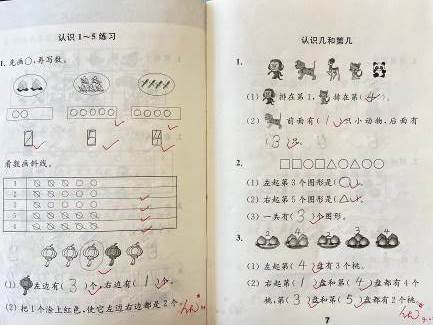 认识1~5练习
1. 先画○，再写数。
○○
○○○○○
○○○○
2
5
4
看数画斜线。
1
2
3
4
5
(1) 左边有(3)个，右边有(1)个。
(2) 把1个涂上红色，使它左边右边都是2个。
认识几和第几
1.
(1) 排在第1，排在第(4)。
(2) 前面有(1)只小动物，后面有
(3)只。
2.
□□○□△○△○○
(1) 左起第3个图形是(○)。
(2) 右起第5个图形是(△)。
(3) 一共有(3)个图形。
3.
2 4 2 3 4
(1) 左起第(4)盘有3个桃。
(2) 右起第(1)盘和第(4)盘都有4个
桃，第(3)盘和第(5)盘都有2个桃。
7